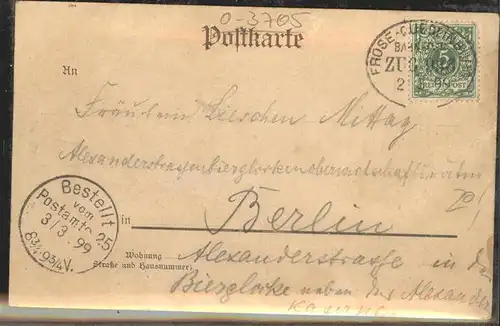 O-3705
Postkarte
FROSE-QUEDLINBURG
BAHNPOST
ZUG
2 99
5
REICHSPOST
An
Fräulein Lieschen Mittag
Bestellt
vom
Postamte 25
3/3. 99
8¾-9¾V.
in
Berlin
Wohnung
Straße und Hausnummer
Alexanderstrasse in der
Bierglocke neben der Alexander
Kaserne